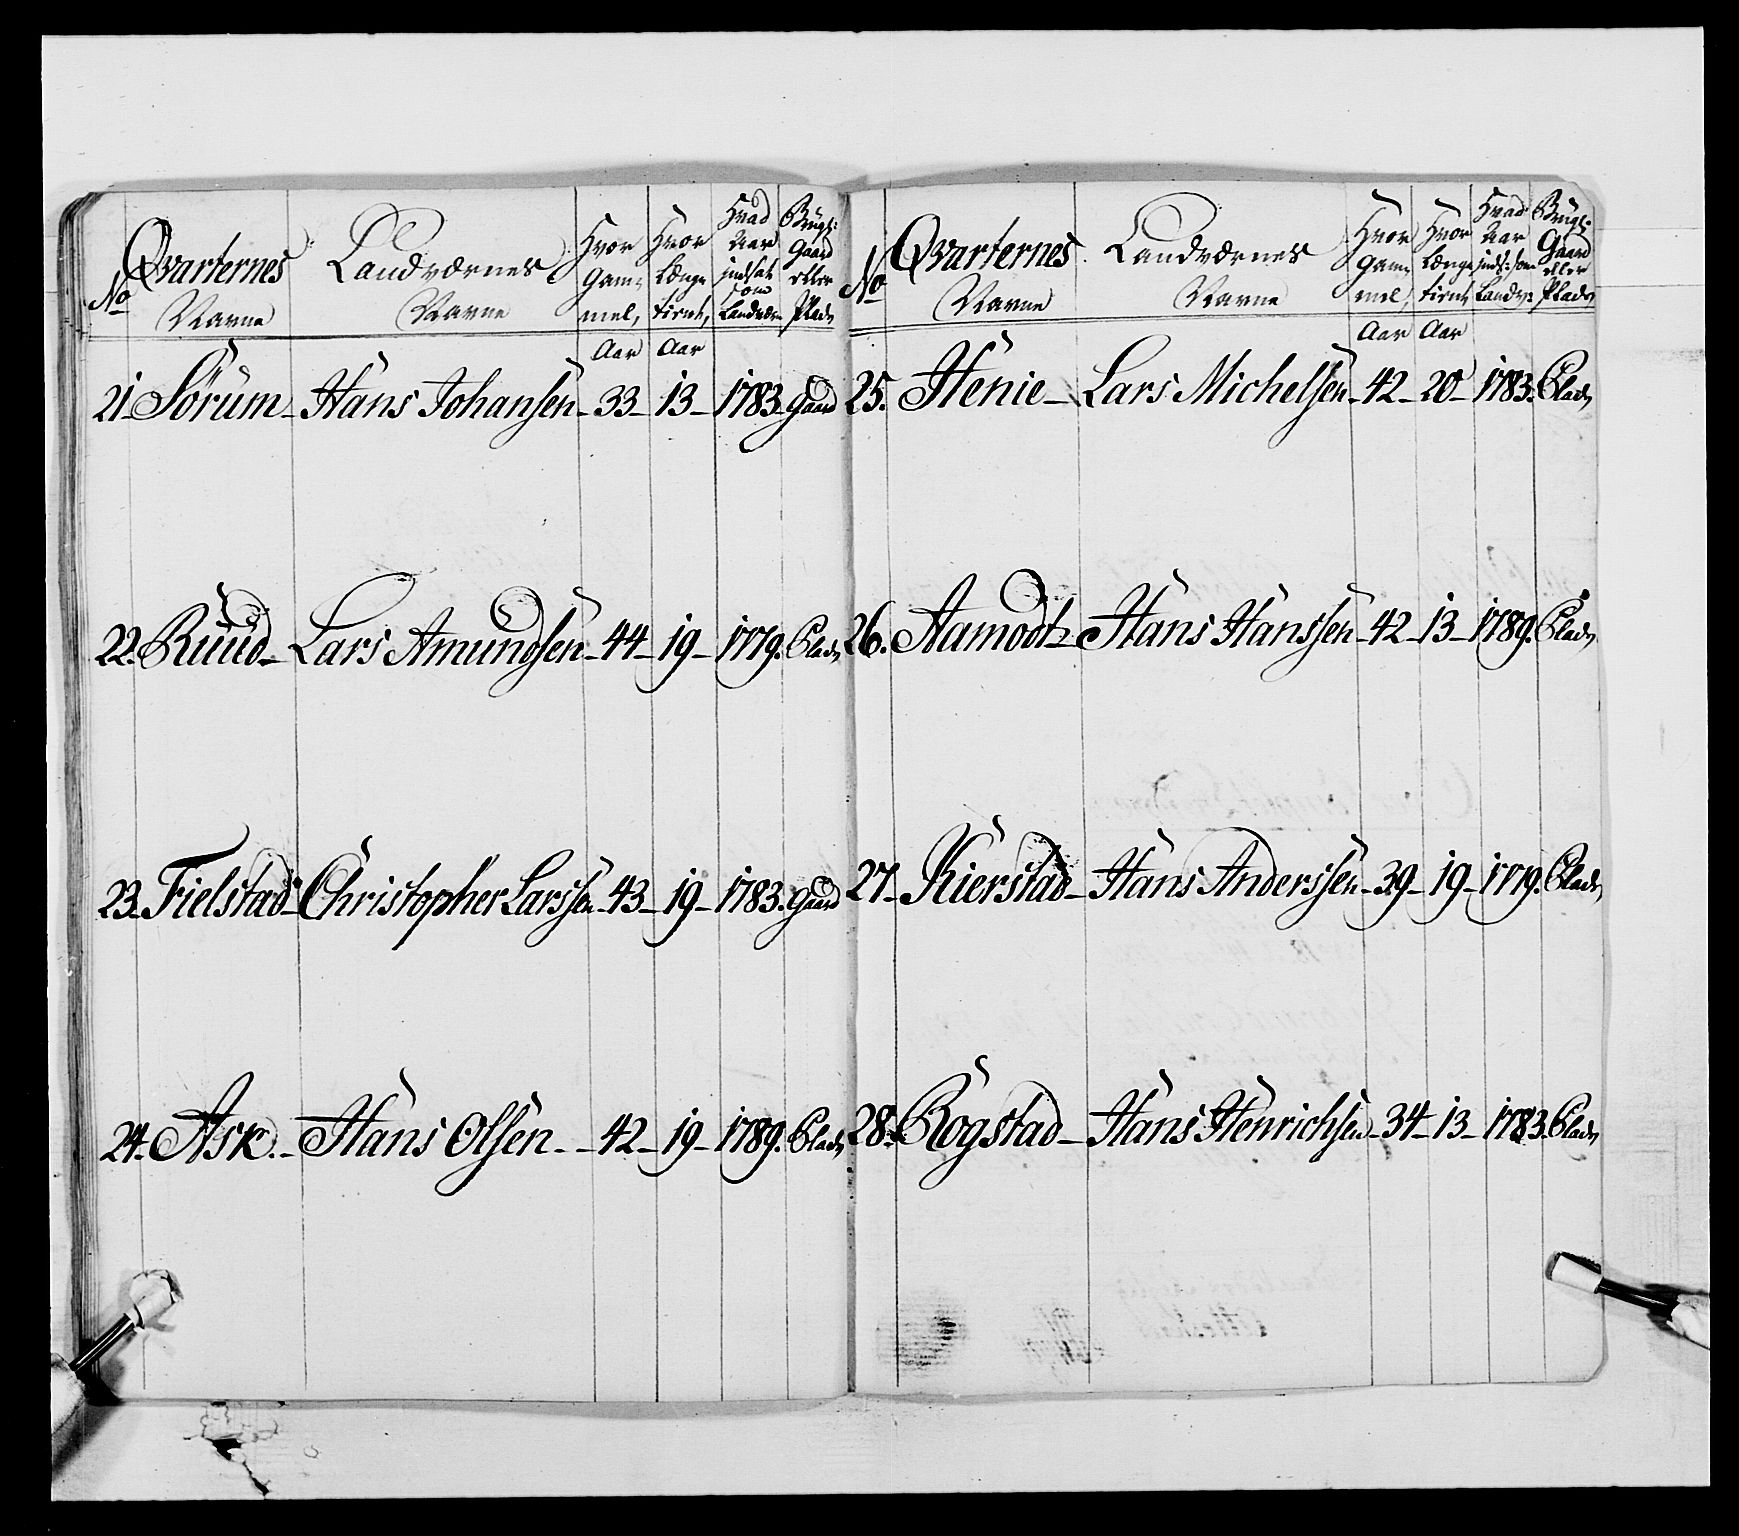 No Qvarternes Navne Landværnes Navne Hvor Gam- mel, Hvor Længe tient, Hvad Aar indsat som Landværn Brug: Gaard eller Plads
Aar Aar
21. Sörum - Hans Johansen - 33 - 13 - 1783. Gaard
22. Ruud - Lars Amundsen - 44 - 19 - 1779. Plads
23. Fielstad - Christopher Larssen - 43 - 19 - 1783. Gaard
24. Ask. - Hans Olsen. - 42 - 19 - 1789. Plads
No Qvarternes Navne Landværnes Navne Hvor Gam- mel, Hvor Længe tient, Hvad Aar inds: som Landv: Brug: Gaard eller Plads
Aar Aar
25. Henie - Lars Michelsen - 42 - 20 - 1783. Plads
26. Aamodt - Hans Hanssen - 42 - 13 - 1789. Plads
27. Kierstad - Hans Anderssen - 39 - 19 - 1779. Plads
28. Rogstad - Hans Henrichsen - 34 - 13 - 1783. Plads